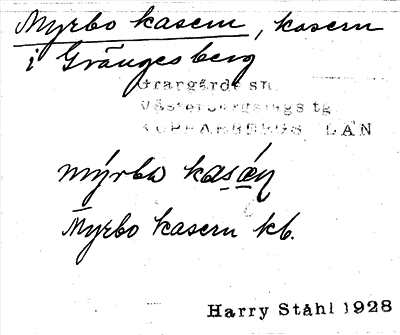 Myrbo kasern, kasern
i Grängesberg
Grangärde sn.
Västerbergslags tg.
KOPPARBERGS LÄN
mýrbω kasáɳ
Myrbo kasern kb.
Harry Ståhl 1928